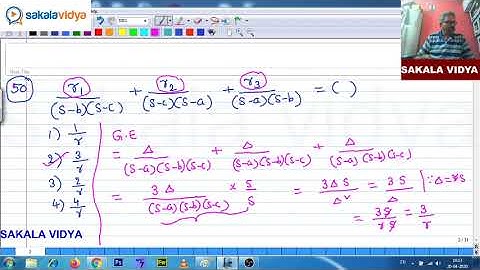 sakalavidya
SAKALA VIDYA
50) r₁/((S-b)(S-c)) + r₂/((S-c)(S-a)) + r₃/((S-a)(S-b)) = ( )
1) 1/r
2) 3/r
3) 2/r
4) 4/r
G.E
= Δ/((S-a)(S-b)(S-c)) + Δ/((S-a)(S-b)(S-c)) + Δ/((S-a)(S-b)(S-c))
= 3Δ/((S-a)(S-b)(S-c)) × S/S = 3ΔS/Δ² = 3S/Δ | ∵Δ=rS
= 3S/rS = 3/r
SAKALA VIDYA